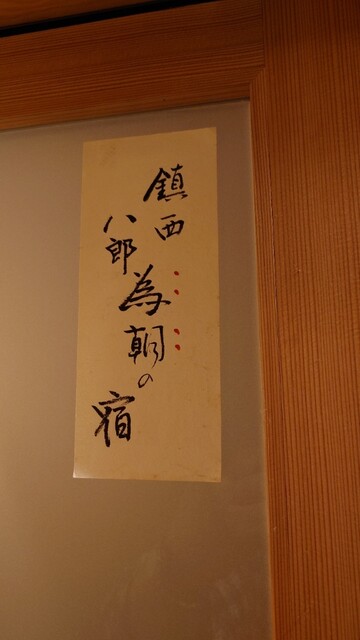 鎮西
八郎
為朝の
宿